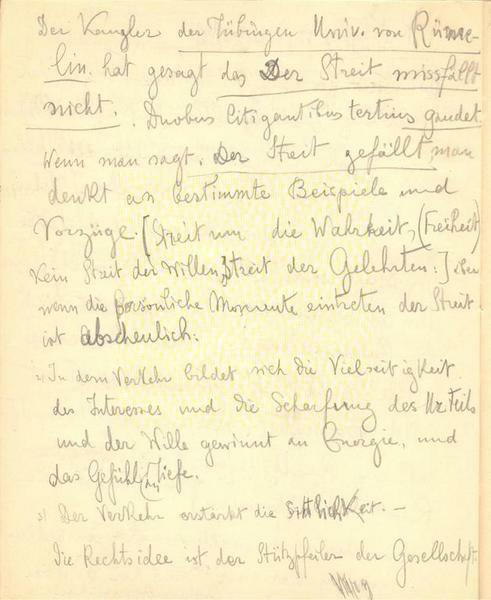 Der Kanzler der Tübingen Univ. von Rüme-
lin. hat gesagt das Der Streit missfällt
nicht. Duobus litigantibus tertius gaudet.
Wenn man sagt. Der Streit gefällt, man
denkt an bestimmte Beispiele und
Vorzüge. [Streit um die Wahrheit, (Freiheit)
Kein Streit der Willen, Streit der Gelehrten.] aber
wenn die persönliche Momente eintreten der Streit
ist abscheulich.
2) In dem Verkehr bildet sich die Vielseitigkeit
des Interesses und die Schärfung des Urteils
und der Wille gewinnt an Energie, und
das Gefühl an Tiefe.
3) Der Verkehr erstarkt die Sittlichkeit. —
Die Rechtsidee ist der Stützpfeiler der Gesellschaft.